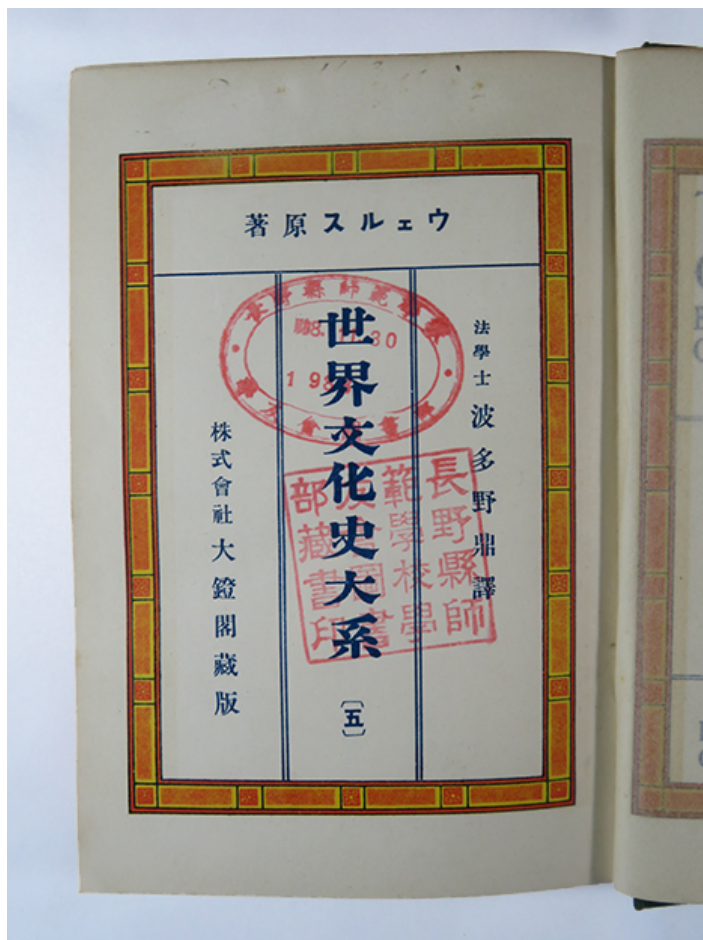 ウェルス原著
法學士 波多野鼎譯
世界文化史大系
〔五〕
株式會社 大鐙閣藏版
長野縣師
範學校學
友會圖書
部藏書印